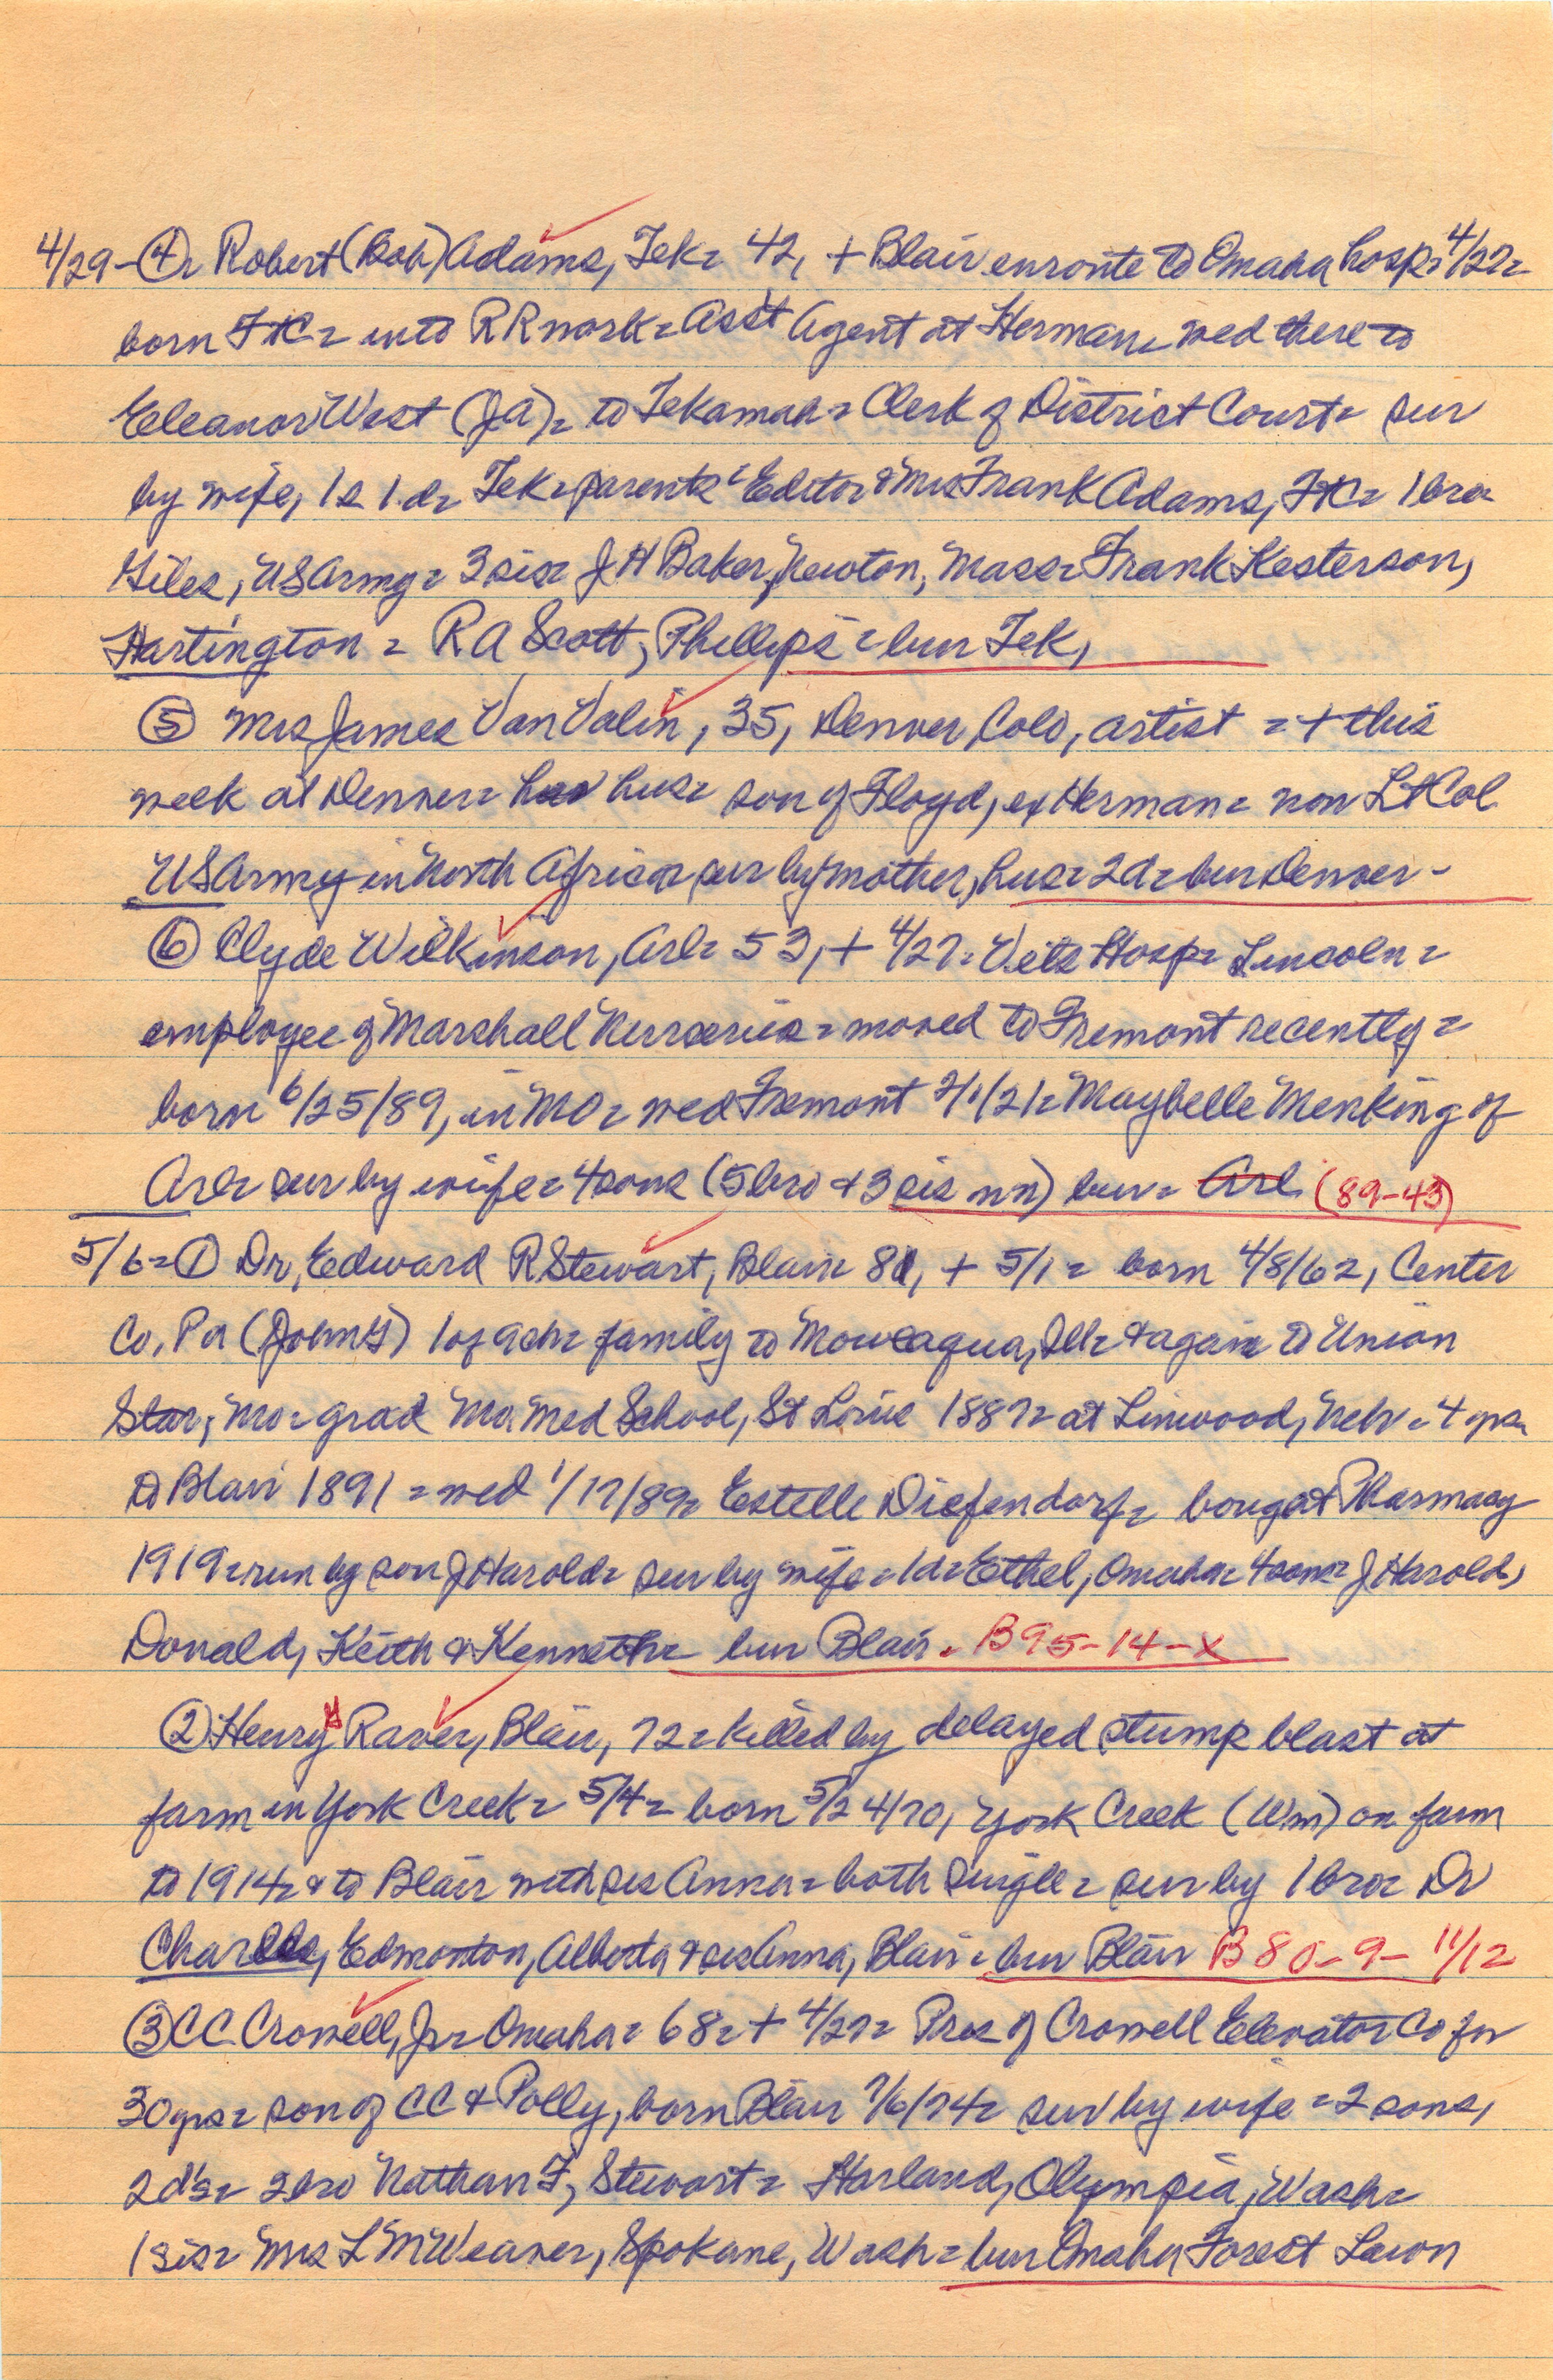 4/29 - ④ = Robert (Bob) Adams, Tek = 42, + Blair enroute to Omaha hosp = 4/22 =
born FtC = into RR work = Asst Agent at Herman = wed there to
Eleanor West (JA) = to Tekamah = Clerk of District Court = sur
by wife, 1s 1d = Tek = parents = Editor & Mrs Frank Adams, FtC = 1 bro =
Giles, US Army = 3 sis = J H Baker, Newton, Mass = Frank Kesterson,
Hartington = R A Scott, Phillips = bur Tek,
⑤ Mrs James Van Valin, 35, Denver Colo, artist = + this
week at Denver = hus = son of Floyd, ex Herman = now Lt Col
US Army in North Africa = sur by mother, hus = 2d = bur Denver -
⑥ Clyde Wilkinson, Arl = 53, + 4/27 = Vets Hosp = Lincoln =
employee of Marshall Nurseries = moved to Fremont recently =
born 6/25/89, in MO = wed Fremont 2/1/21 = Maybelle Menking of
Arl = sur by wife = 4 sons (5 bro & 3 sis nn) bur = Arl (89-43)
5/6 = ① Dr, Edward R Stewart, Blair = 81, + 5/1 = born 4/8/62, Center
Co, Pa (John G) 1 of 9 ch = family to Moweaqua, Ill = & again to Union
Star, Mo = grad Mo. Med School, St Louis 1887 = at Linwood, Neb = 4 yrs =
to Blair 1891 = wed 1/17/89 = Estelle Diefendorf = bought Pharmacy
1919 = run by son J Harold = sur by wife = 1d = Ethel, Omaha = 4 sons = J Harold,
Donald, Keith & Kenneth = bur Blair. B95-14-X
② Henry H Raver, Blair, 72 = killed by delayed stump blast at
farm in York Creek = 5/4 = born 5/24/70, York Creek (Wm) on farm
to 1914 = & to Blair with sis Anna = both single = sur by 1 bro = Dr
Charles, Edmonton, Alberta & sis Anna, Blair = bur Blair B80-9-11/12
③ CC Crowell, Jr = Omaha = 68 = + 4/27 = Pres of Crowell Elevator Co for
30 yrs = son of CC & Polly, born Blair 7/6/74 = sur by wife = 2 sons,
2 d's = 2 bro Nathan F, Stewart = Harland, Olympia, Wash =
1 sis = Mrs L M Weaver, Spokane, Wash = bur Omaha Forest Lawn